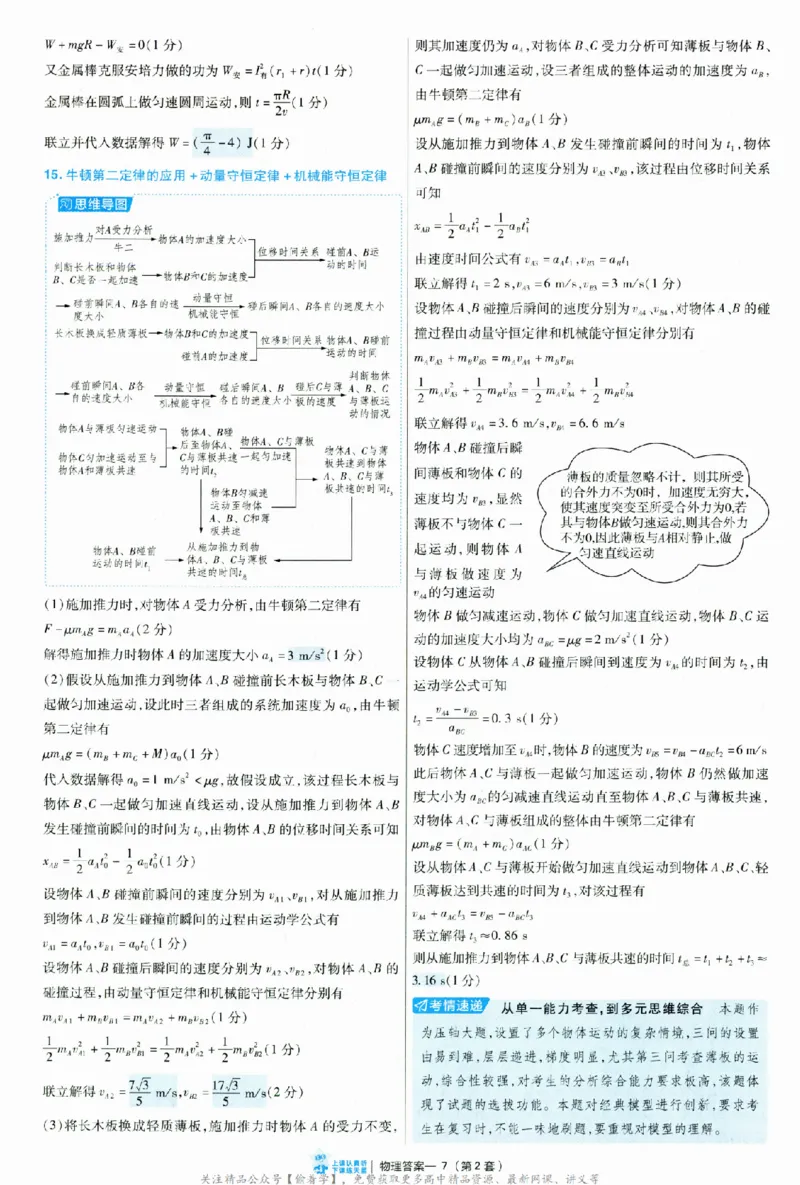 W+mgR-W安=0(1分)
又金属棒克服安培力做的功为W安=I²有(r₁+r)t(1分)
金属棒在圆弧上做匀速圆周运动,则t=πR/2v(1分)
联立并代入数据解得W=(π/4-4)J(1分)
15.牛顿第二定律的应用+动量守恒定律+机械能守恒定律
思维导图
施加推力 对A受力分析 牛二 物体A的加速度大小
判断长木板和物体B、C是否一起加速 物体B和C的加速度
位移时间关系 碰前A、B运动的时间
碰前瞬间A、B各自的速度大小 动量守恒 机械能守恒 碰后瞬间A、B各自的速度大小
长木板换成轻质薄板 物体B和C的加速度
碰前A的加速度
位移时间关系 物体A、B碰前运动的时间
碰前瞬间A、B各自的速度大小 动量守恒 机械能守恒 碰后瞬间A、B各自的速度大小 碰后C与薄板的速度 判断物体A、B、C与薄板运动的情况
物体A与薄板匀速运动
物体C匀加速运动至与物体A和薄板共速
物体A、B碰后至物体A、C与薄板共速的时间t₂
物体A、C与薄板一起匀加速
物体B匀减速运动至物体A、B、C和薄板共速
物体A、C与薄板共速到物体A、B、C与薄板共速的时间t₃
物体A、B碰前运动的时间t₁
从施加推力到物体A、B、C与薄板共速的时间t总
(1)施加推力时,对物体A受力分析,由牛顿第二定律有
F-μm_Ag=m_Aa_A(2分)
解得施加推力时物体A的加速度大小a_A=3 m/s²(1分)
(2)假设从施加推力到物体A、B碰撞前长木板与物体B、C一
起做匀加速运动,设此时三者组成的系统加速度为a₀,由牛顿
第二定律有
μm_Ag=(m_B+m_C+M)a₀(1分)
代入数据解得a₀=1 m/s²<μg,故假设成立,该过程长木板与
物体B、C一起做匀加速直线运动,设从施加推力到物体A、B
发生碰撞前瞬间的时间为t₀,由物体A、B的位移时间关系可知
x_AB=1/2a_At₀²-1/2a₀t₀²(1分)
设物体A、B碰撞前瞬间的速度分别为v_A1、v_B1,对从施加推力
到物体A、B发生碰撞前瞬间的过程由运动学公式有
v_A1=a_At₀,v_B1=a₀t₀(1分)
设物体A、B碰撞后瞬间的速度分别为v_A2、v_B2,对物体A、B的
碰撞过程,由动量守恒定律和机械能守恒定律分别有
m_Av_A1+m_Bv_B1=m_Av_A2+m_Bv_B2(1分)
1/2m_Av²_A1+1/2m_Bv²_B1=1/2m_Av²_A2+1/2m_Bv²_B2(1分)
联立解得v_A2=7√3/5 m/s,v_B2=17√3/5 m/s(2分)
(3)将长木板换成轻质薄板,施加推力时物体A的受力不变,
则其加速度仍为a_A,对物体B、C受力分析可知薄板与物体B、
C一起做匀加速运动,设三者组成的整体运动的加速度为a_B,
由牛顿第二定律有
μm_Ag=(m_B+m_C)a_B(1分)
设从施加推力到物体A、B发生碰撞前瞬间的时间为t₁,物体
A、B碰撞前瞬间的速度分别为v_A3、v_B3,该过程由位移时间关系
可知
x_AB=1/2a_At₁²-1/2a_Bt₁²
由速度时间公式有v_A3=a_At₁,v_B3=a_Bt₁
联立解得t₁=2 s,v_A3=6 m/s,v_B3=3 m/s(1分)
设物体A、B碰撞后瞬间的速度分别为v_A4、v_B4,对物体A、B的碰
撞过程由动量守恒定律和机械能守恒定律分别有
m_Av_A3+m_Bv_B3=m_Av_A4+m_Bv_B4
1/2m_Av²_A3+1/2m_Bv²_B3=1/2m_Av²_A4+1/2m_Bv²_B4
联立解得v_A4=3.6 m/s,v_B4=6.6 m/s
物体A、B碰撞后瞬
间薄板和物体C的
速度均为v_B3,显然
薄板不与物体C一
起运动,则物体A
与薄板做速度为
v_A4的匀速运动
薄板的质量忽略不计,则其所受
的合外力不为0时,加速度无穷大,
使其速度突变至所受合外力为0,若
其与物体B做匀速运动,则其合外力
不为0,因此薄板与A相对静止,做
匀速直线运动
物体B做匀减速运动,物体C做匀加速直线运动,物体B、C运
动的加速度大小均为a_BC=μg=2 m/s²(1分)
设物体C从物体A、B碰撞后瞬间到速度为v_A4的时间为t₂,由
运动学公式可知
t₂=(v_A4-v_B3)/a_BC=0.3 s(1分)
物体C速度增加至v_A4时,物体B的速度为v_B5=v_B4-a_BCt₂=6 m/s
此后物体A、C与薄板一起做匀加速运动,物体B仍然做加速
度大小为a_BC的匀减速直线运动直至物体A、B、C与薄板共速,
对物体A、C与薄板组成的整体由牛顿第二定律有
μm_Bg=(m_A+m_C)a_AC(1分)
设从物体A、C与薄板开始做匀加速直线运动到物体A、B、C、轻
质薄板达到共速的时间为t₃,对该过程有
v_A4+a_ACt₃=v_B5-a_BCt₃
联立解得t₃≈0.86 s
则从施加推力到物体A、B、C与薄板共速的时间t总=t₁+t₂+t₃≈
3.16 s(1分)
考情速递 从单一能力考查,到多元思维综合 本题作
为压轴大题,设置了多个物体运动的复杂情境,三问的设置
由易到难,层层递进,梯度明显,尤其第三问考查薄板的运
动,综合性较强,对考生的分析综合能力要求极高,该题体
现了试题的选拔功能。本题对经典模型进行创新,要求考
生在复习时,不能一味地刷题,要重视对模型的理解。
上课认真听
下课练天星
物理答案—7(第2套)
关注精品公众号【偷着学】,免费获取更多高中精品资源、最新网课、讲义等